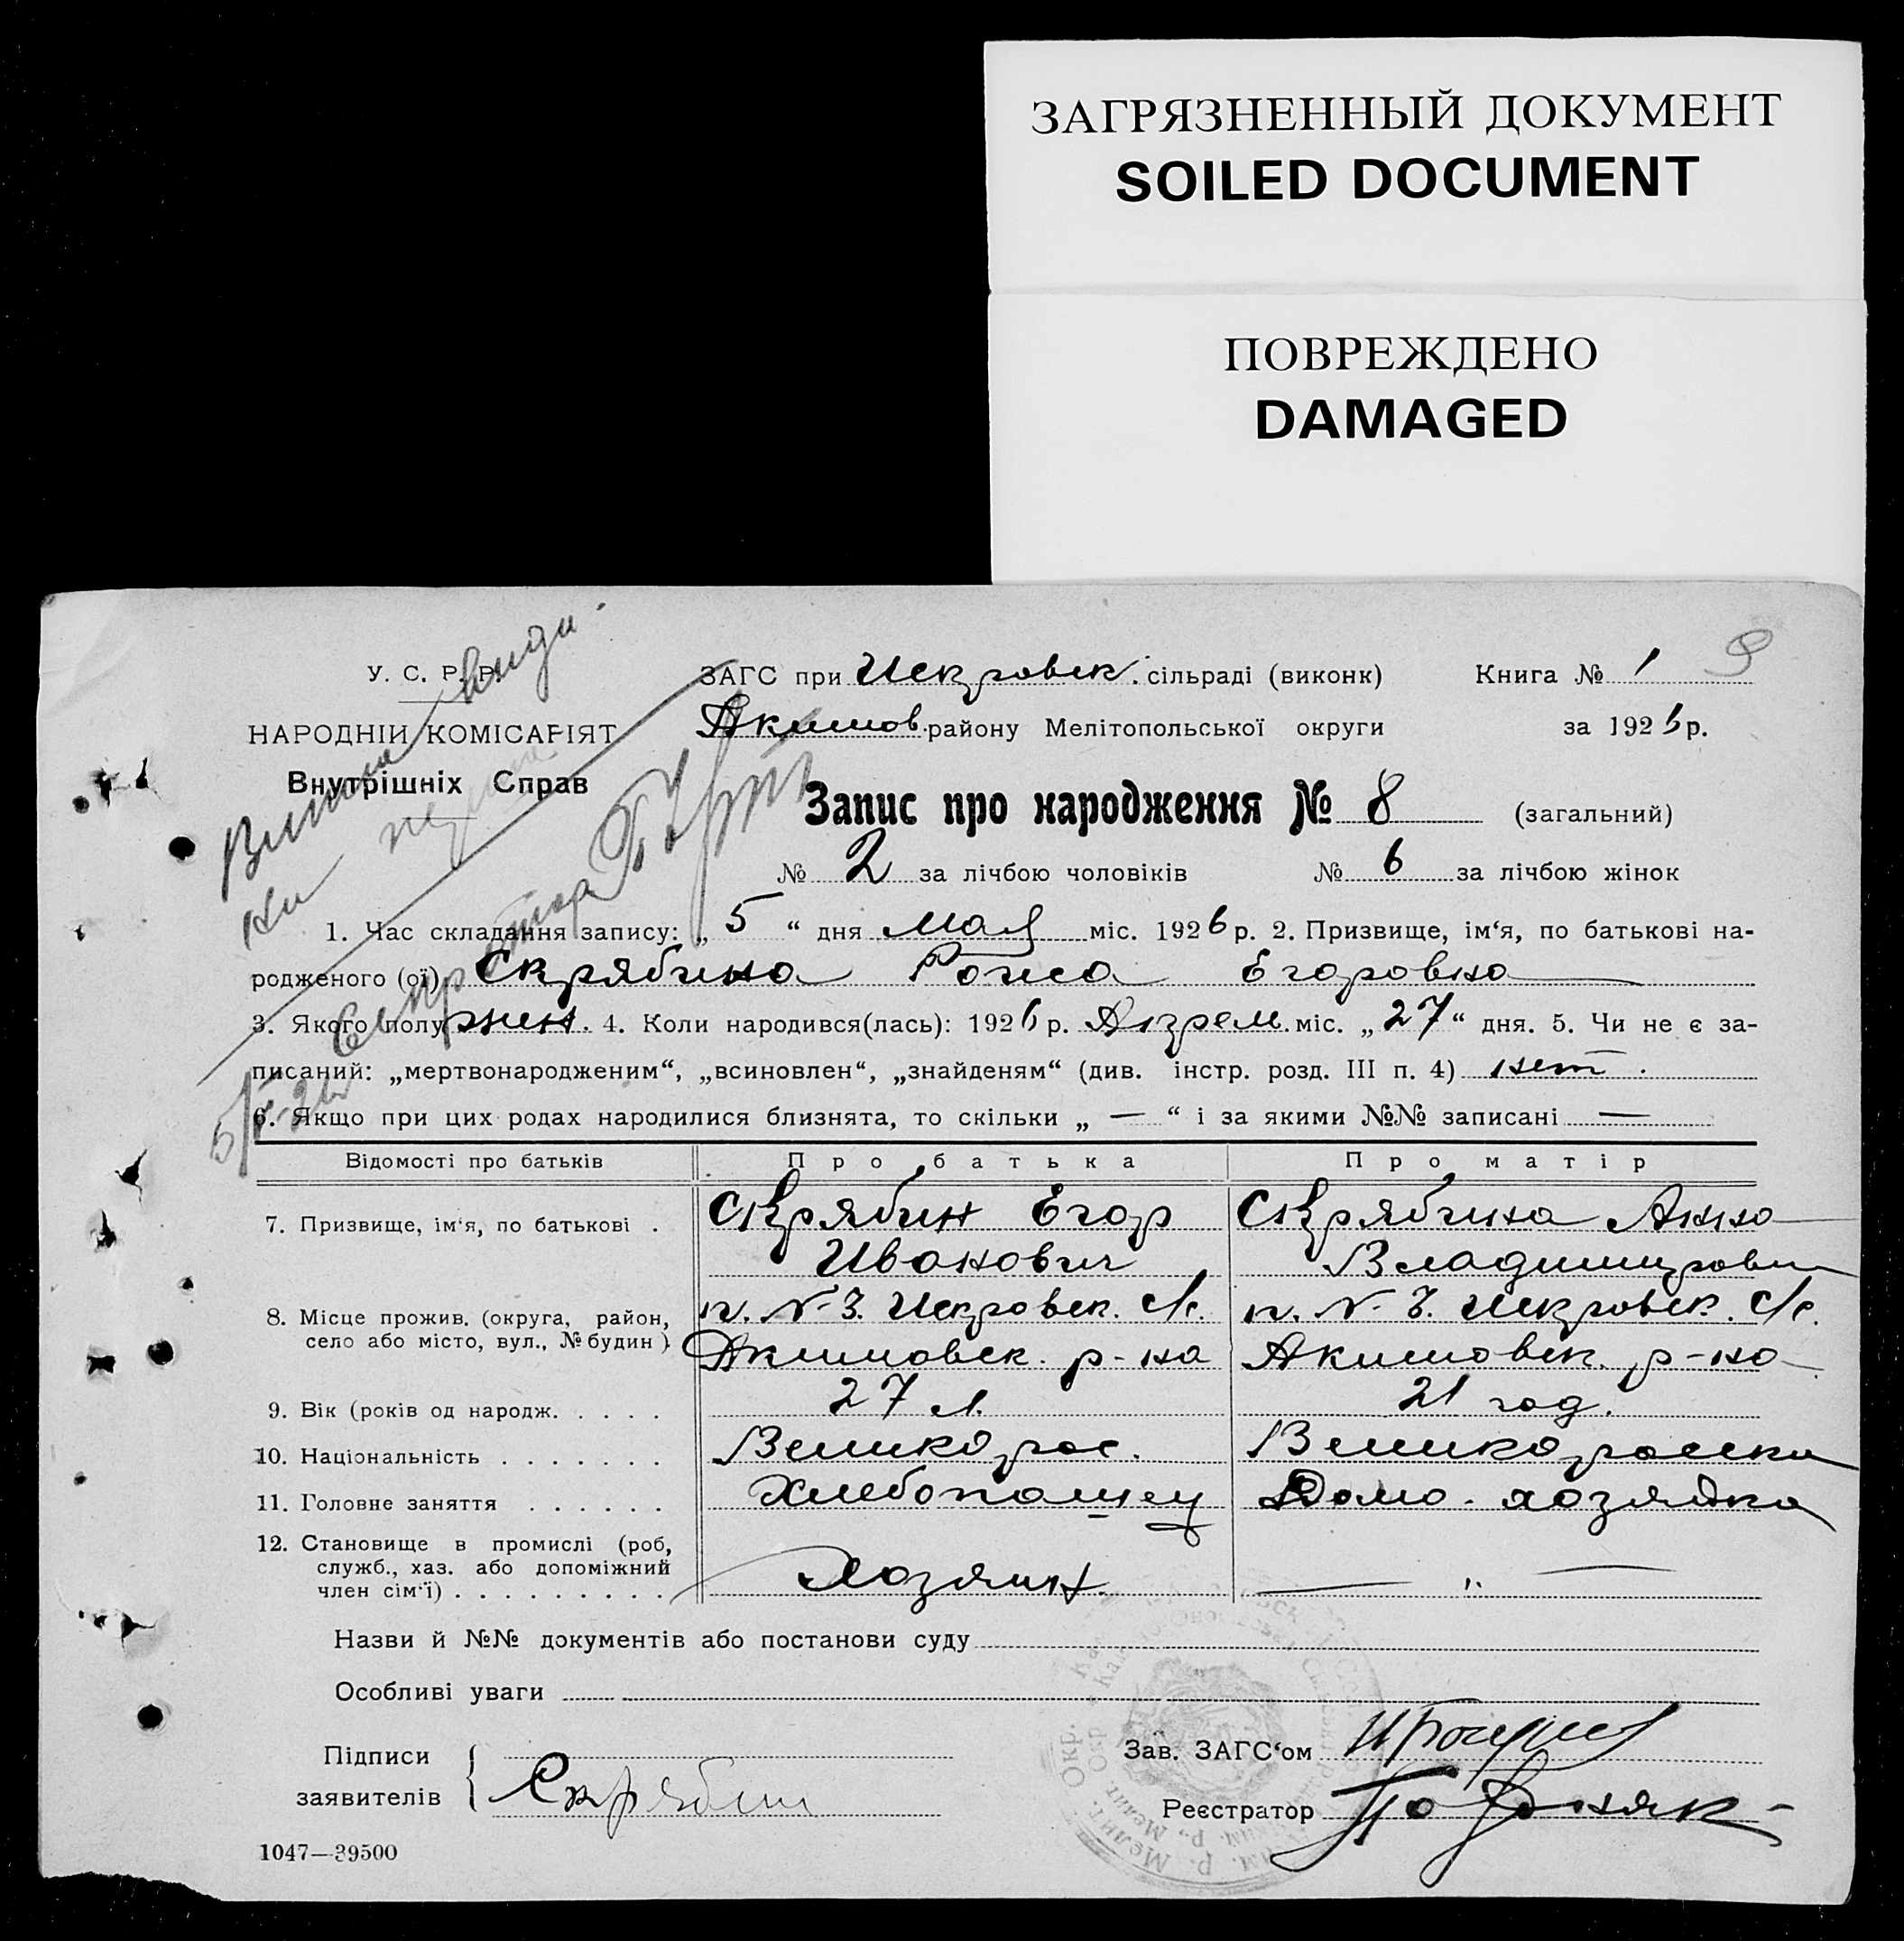 ЗАГРЯЗНЕННЫЙ ДОКУМЕНТ
SOILED DOCUMENT
ПОВРЕЖДЕНО
DAMAGED
У. С. Р. Р.
НАРОДНІЙ КОМІСАРІЯТ
Внутрішніх Справ
ЗАГС при Искровск. сільраді (виконк) Книга № 1 9
Акимов. району Мелітопольської округи за 1926 р.
Запис про народження № 8 (загальний)
№ 2 за лічбою чоловіків № 6 за лічбою жінок
1. Час складання запису: „ 5 “ дня Мая міс. 1926 р. 2. Призвище, ім‘я, по батькові на-
родженого (ої) Скрябина Роиса Егоровна
3. Якого полу жен. 4. Коли народився(лась): 1926 р. Апрел. міс. „ 27 “ дня. 5. Чи не є за-
писаний: „мертвонародженим“, „всиновлен“, „знайденям“ (див. інстр. розд. III п. 4) нет.
6. Якщо при цих родах народилися близнята, то скільки „ — “ і за якими №№ записані —
5/V-26
Відомості про батьків Про батька Про матір
7. Призвище, ім‘я, по батькові . Скрябин Егор Скрябина Анна
Иванович Владимировн
8. Місце прожив. (округа, район, п. N-3. Искровск. с/с. п. N-3. Искровск. с/с.
село або місто, вул., № будин) Акимовск. р-на Акимовск. р-на
9. Вік (років од народж. . . . . 27 л. 21 год.
10. Національність . . . . . . . Великорос. Великоросска
11. Головне заняття . . . . . . Хлебопашец Домо-хозяйка
12. Становище в промислі (роб,
служб., хаз. або допоміжний
член сім‘ї) . . . . . . . . . Хозяин. — „ —
Назви й №№ документів або постанови суду
Особливі уваги
Підписи
заявителів Скрябин
Зав. ЗАГС‘ом
Реєстратор
1047—39500